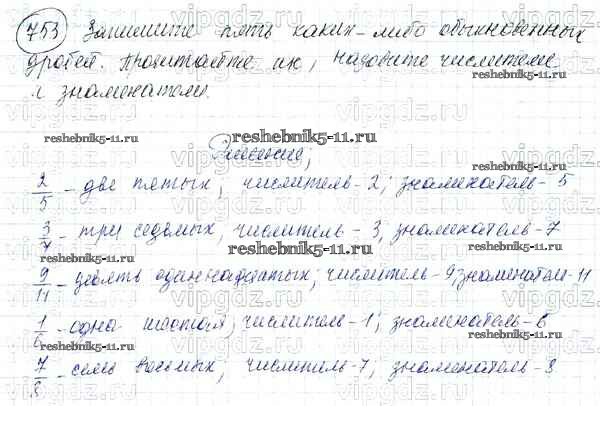 753 Запишите пять каких-либо обыкновенных
дробей. Прочитайте их, назовите числители
и знаменатели.
reshebnik5-11.ru
Решение;
2/5 - две пятых; числитель-2; знаменатель-5
3/7 - три седьмых, числитель-3, знаменатель-7
reshebnik5-11.ru
9/11 - девять одиннадцатых; числитель-9; знаменатель-11
1/6 - одна шестая; числитель-1; знаменатель-6
reshebnik5-11.ru
7/8 - семь восьмых; числитель-7; знаменатель-8